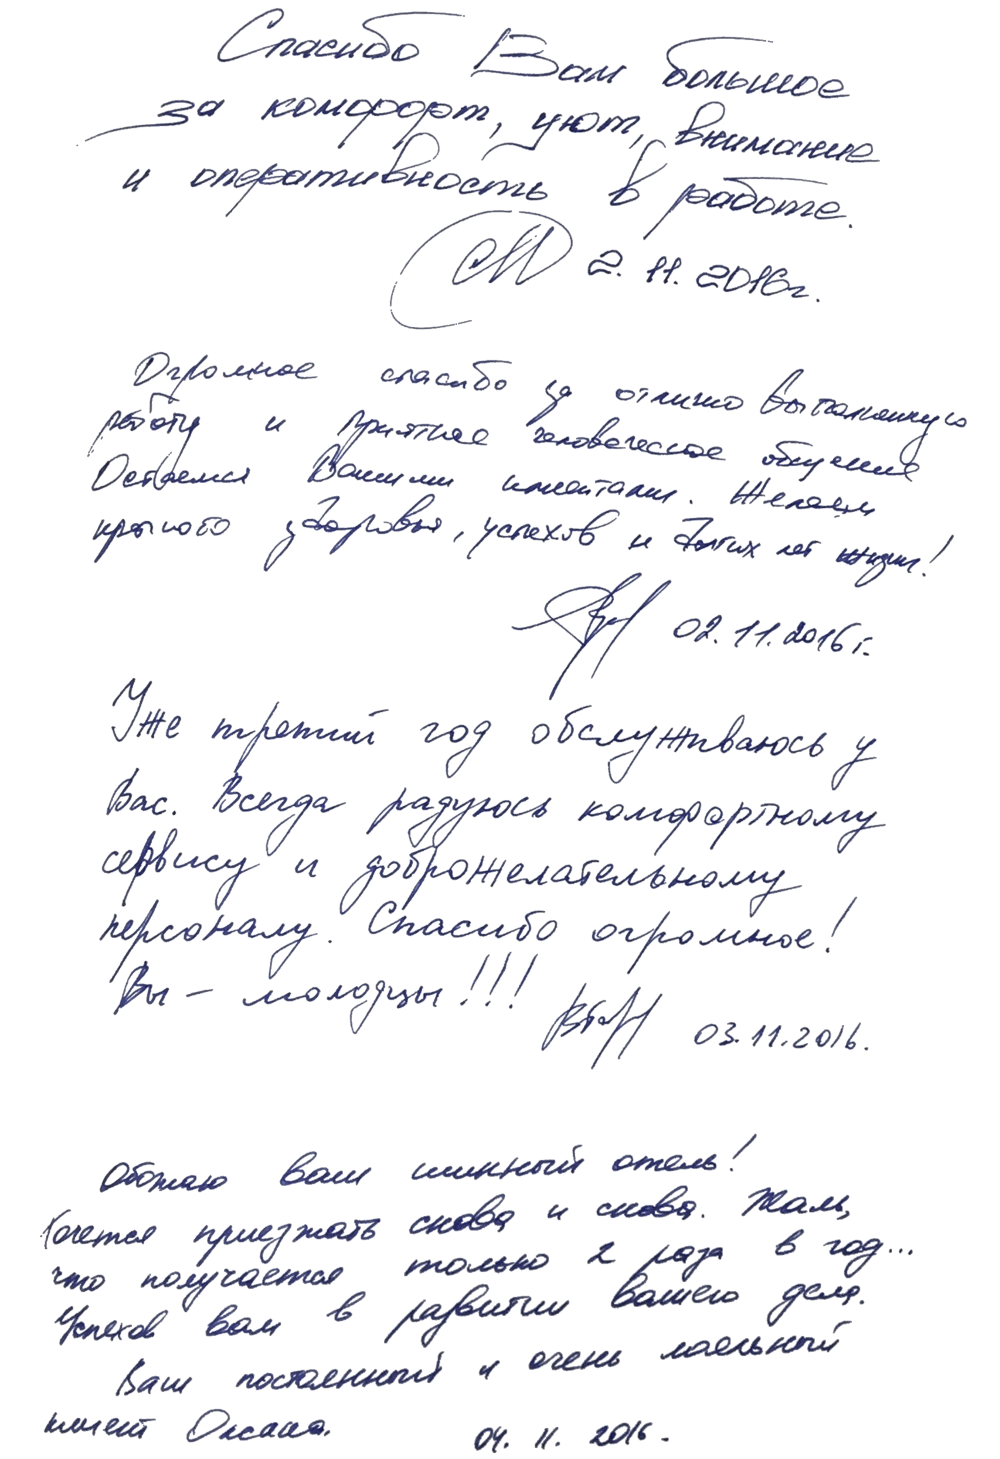 Спасибо Вам большое
за комфорт, уют, внимание
и оперативность в работе.
2.11.2016г.
Огромное спасибо за отлично выполненную
работу и приятное человеческое общение
Остаемся Вашими клиентами. Желаем
крепкого здоровья, успехов и долгих лет жизни!
02.11.2016г.
Уже третий год обслуживаюсь у
Вас. Всегда радуюсь комфортному
сервису и доброжелательному
персоналу. Спасибо огромное!
Вы – молодцы!!!
03.11.2016.
Обожаю ваш шинный отель!
Хочется приезжать снова и снова. Жаль,
что получается только 2 раза в год...
Успехов вам в развитии вашего дела.
Ваш постоянный и очень лояльный
клиент Оксана.
04.11.2016.